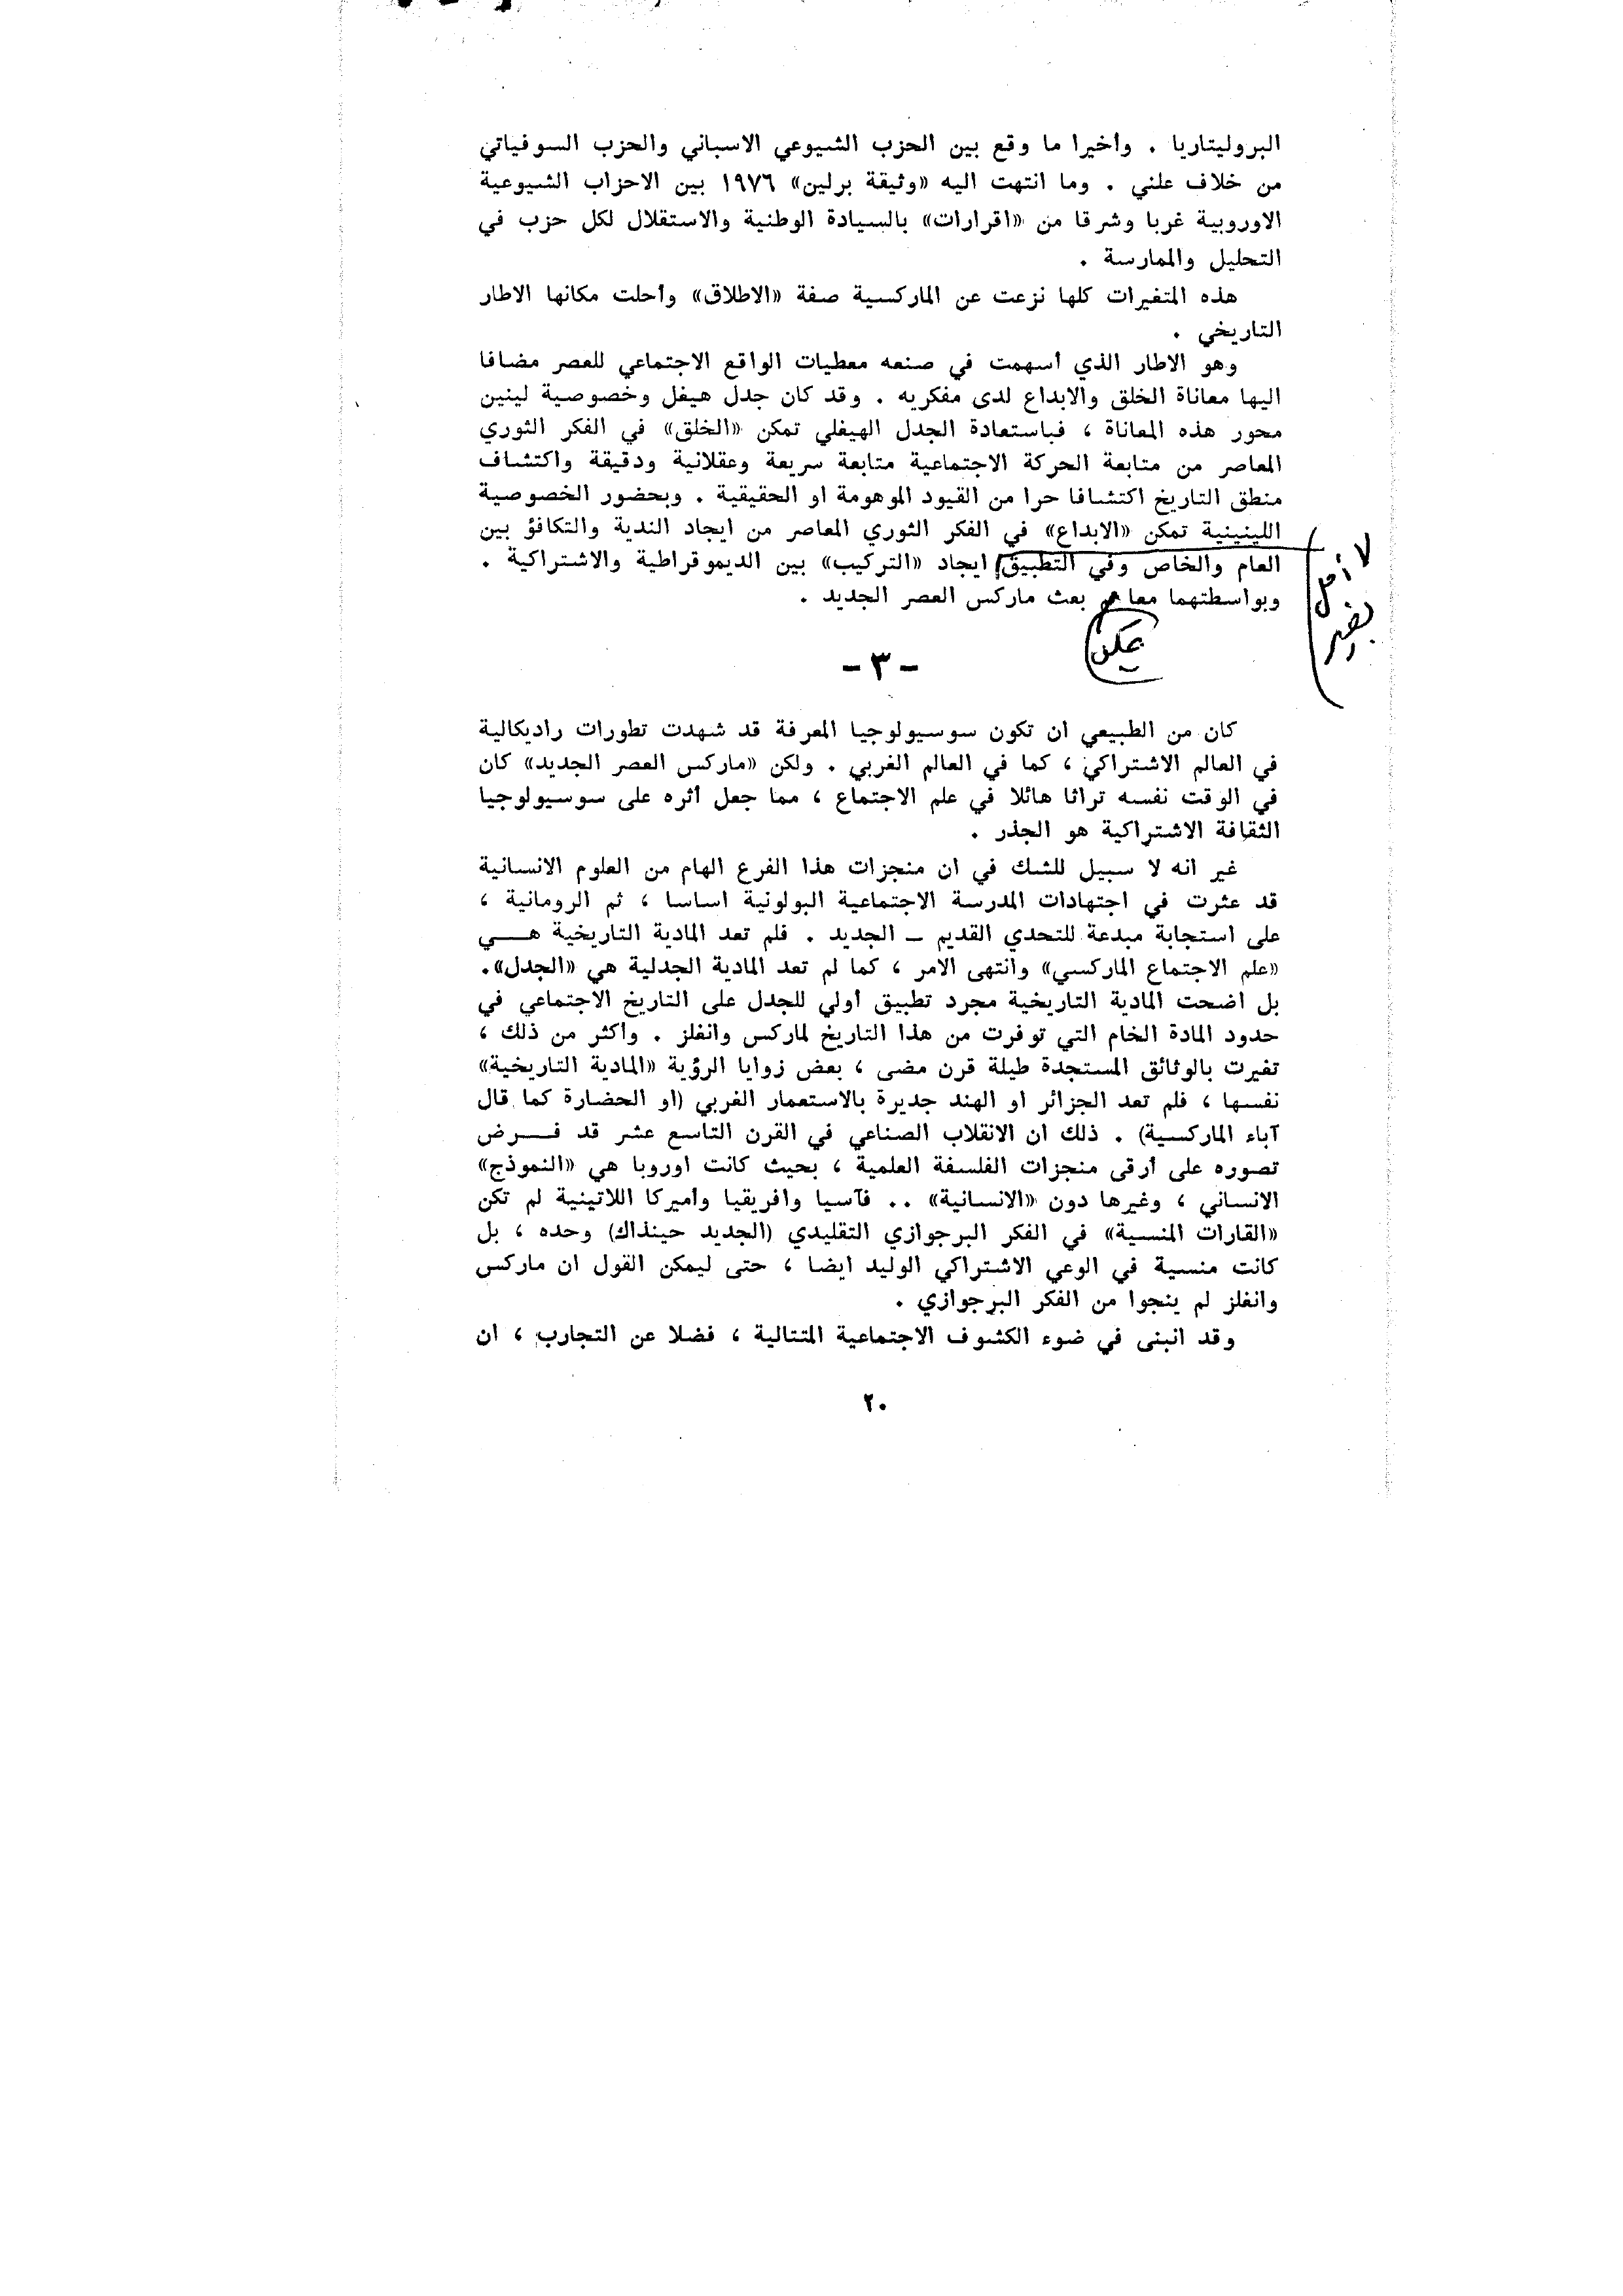 البروليتاريا . وأخيرا ما وقع بين الحزب الشيوعي الاسباني والحزب السوفياتي
من خلاف علني . وما انتهت اليه «وثيقة برلين» ١٩٧٦ بين الاحزاب الشيوعية
الاوروبية غربا وشرقا من «اقرارات» بالسيادة الوطنية والاستقلال لكل حزب في
التحليل والممارسة .
هذه المتغيرات كلها نزعت عن الماركسية صفة «الاطلاق» وأحلت مكانها الاطار
التاريخي .
وهو الاطار الذي أسهمت في صنعه معطيات الواقع الاجتماعي للعصر مضافا
اليها معاناة الخلق والابداع لدى مفكريه . وقد كان جدل هيغل وخصوصية لينين
محور هذه المعاناة ، فباستعادة الجدل الهيغلي تمكن «الخلق» في الفكر الثوري
المعاصر من متابعة الحركة الاجتماعية متابعة سريعة وعقلانية ودقيقة واكتشاف
منطق التاريخ اكتشافا حرا من القيود الموهومة او الحقيقية . وبحضور الخصوصية
اللينينية تمكن «الابداع» في الفكر الثوري المعاصر من ايجاد الندية والتكافؤ بين
العام والخاص وفي التطبيق ايجاد «التركيب» بين الديموقراطية والاشتراكية .
وبواسطتهما معا بعث ماركس العصر الجديد .
يمكن
- ٣ -
كان من الطبيعي ان تكون سوسيولوجيا المعرفة قد شهدت تطورات راديكالية
في العالم الاشتراكي ، كما في العالم الغربي . ولكن «ماركس العصر الجديد» كان
في الوقت نفسه تراثا هائلا في علم الاجتماع ، مما جعل أثره على سوسيولوجيا
الثقافة الاشتراكية هو الجذر .
غير انه لا سبيل للشك في ان منجزات هذا الفرع الهام من العلوم الانسانية
قد عثرت في اجتهادات المدرسة الاجتماعية البولونية اساسا ، ثم الرومانية ،
على استجابة مبدعة للتحدي القديم – الجديد . فلم تعد المادية التاريخية هــي
«علم الاجتماع الماركسي» وانتهى الامر ، كما لم تعد المادية الجدلية هي «الجدل».
بل اضحت المادية التاريخية مجرد تطبيق أولي للجدل على التاريخ الاجتماعي في
حدود المادة الخام التي توفرت من هذا التاريخ لماركس وانغلز . وأكثر من ذلك ،
تغيرت بالوثائق المستجدة طيلة قرن مضى ، بعض زوايا الرؤية «المادية التاريخية»
نفسها ، فلم تعد الجزائر او الهند جديرة بالاستعمار الغربي (او الحضارة كما قال
آباء الماركسية) . ذلك ان الانقلاب الصناعي في القرن التاسع عشر قد فــرض
تصوره على أرقى منجزات الفلسفة العلمية ، بحيث كانت اوروبا هي «النموذج»
الانساني ، وغيرها دون «الانسانية» .. فآسيا وافريقيا وأميركا اللاتينية لم تكن
«القارات المنسية» في الفكر البرجوازي التقليدي (الجديد حينذاك) وحده ، بل
كانت منسية في الوعي الاشتراكي الوليد ايضا ، حتى ليمكن القول ان ماركس
وانغلز لم ينجوا من الفكر البرجوازي .
وقد انبنى في ضوء الكشوف الاجتماعية المتتالية ، فضلا عن التجارب ، ان
٢٠